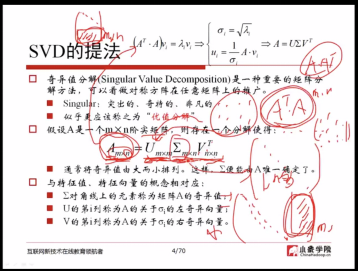 SVD的提法
(Aᵀ·A)vᵢ=λᵢvᵢ ⇒ { σᵢ=√λᵢ  uᵢ=1/σᵢ A·vᵢ ⇒ A=UΣVᵀ
奇异值分解(Singular Value Decomposition)是一种重要的矩阵分
解方法,可以看做对称方阵在任意矩阵上的推广。
Singular:突出的、奇特的、非凡的
似乎更应该称之为“优值分解”
假设A是一个m×n阶实矩阵,则存在一个分解使得:
Aₘₓₙ=UₘₓₘΣₘₓₙVᵀₙₓₙ
通常将奇异值由大而小排列。这样,Σ便能由A唯一确定了。
与特征值、特征向量的概念相对应:
Σ对角线上的元素称为矩阵A的奇异值;
U的第i列称为A的关于σᵢ的左奇异向量;
V的第i列称为A的关于σᵢ的右奇异向量。
互联网新技术在线教育领航者
4/70
小象学院
ChinaHadoop.cn
AᵀA